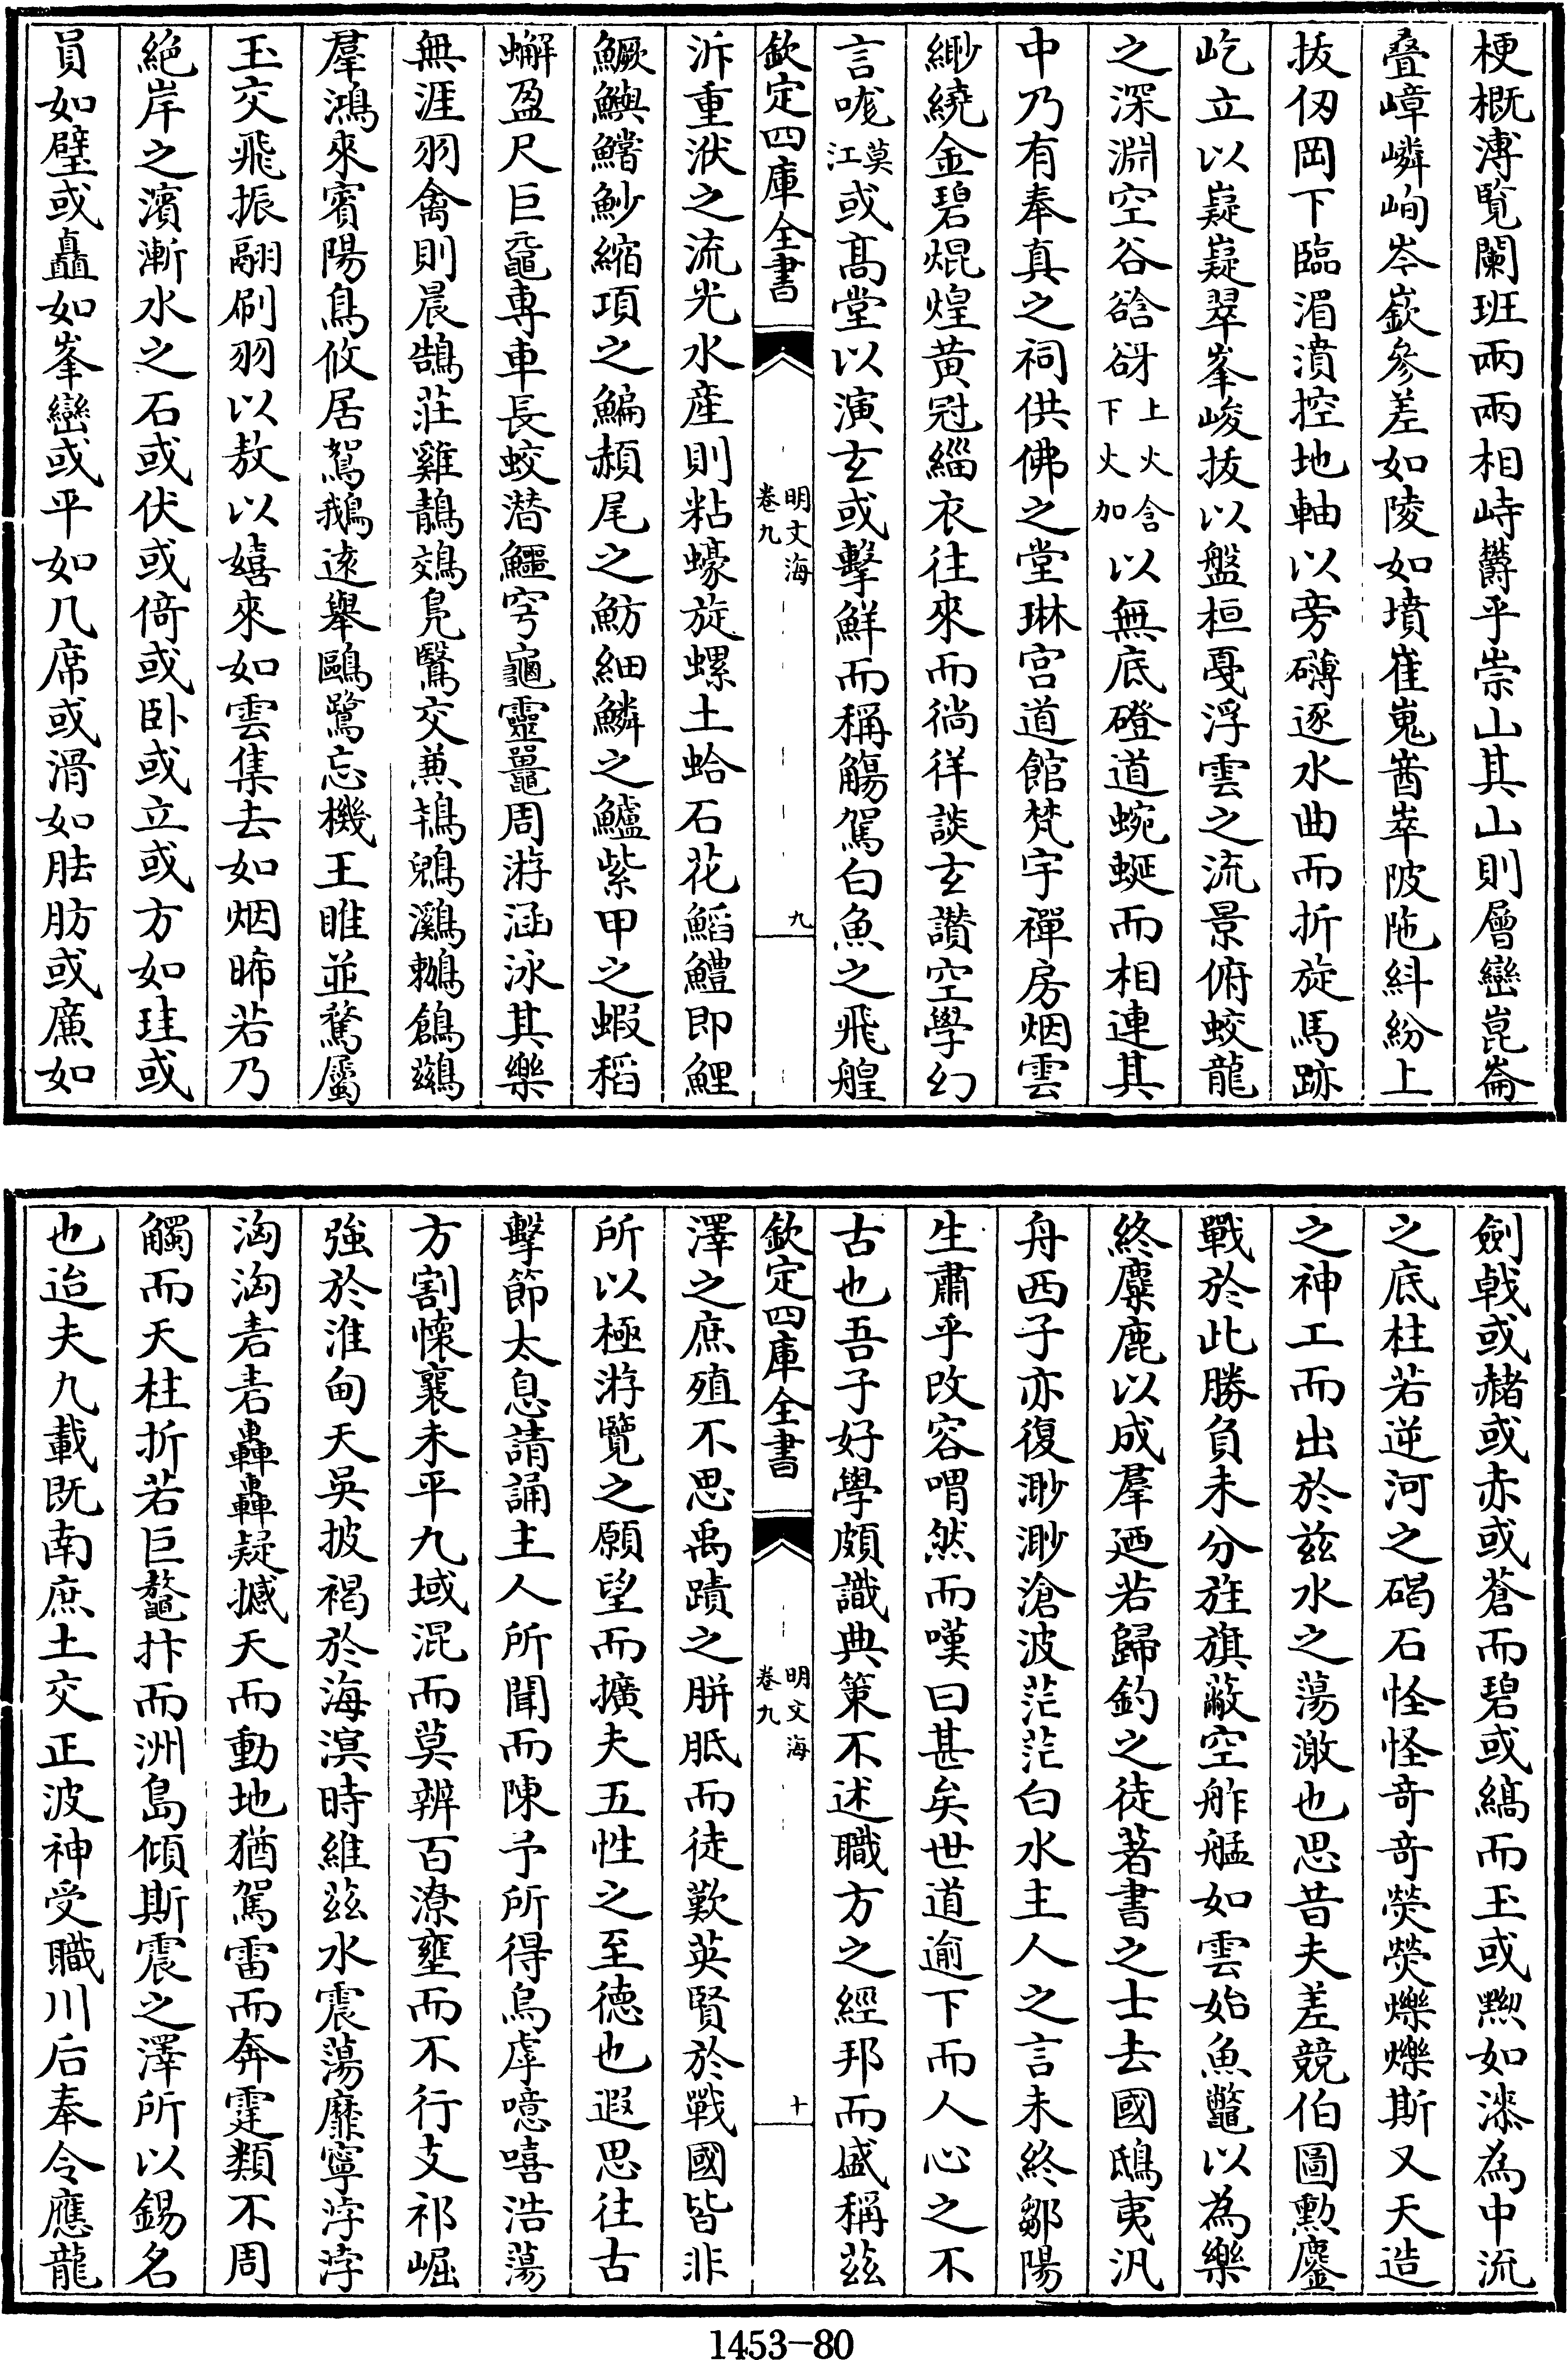 梗概溥覧闌班兩兩相峙欝乎崇山其山則層巒崑崙
叠嶂嶙峋岑嶔參差如陵如墳崔嵬酋崒陂陁糾紛上
抜仞岡下臨湄濆控地軸以旁礴逐水曲而折旋馬跡
屹立以嶷嶷翠峯峻拔以盤桓戞浮雲之流景俯蛟龍
之深淵空谷谽谺上火含下火加以無底磴道蜿蜒而相連其
中乃有奉真之祠供佛之堂琳宮道館梵宇禪房烟雲
緲繞金碧焜煌黄冠緇衣往來而徜徉談玄讚空學幻
言哤莫江或髙堂以演玄或擊鮮而稱觴駕白魚之飛艎
欽定四庫全書
明文海
卷九
九
泝重洑之流光水産則粘蠔旋螺土蛤石花鰌鱧即鯉
鱖鱮鱨魦縮項之鯿頳尾之魴細鱗之鱸紫甲之蝦稻
蠏盈尺巨黿專車長蛟潜鱷穹龜靈鼉周游涵泳其樂
無涯羽禽則晨鵠莊雞鶄鵁鳧鷖交鵜鶂鸂鶒鶬鷀
羣鴻來賓陽鳥攸居鴐鵝遠舉鷗鷺忘機王雎並鶩屬
玉交飛振翮刷羽以敖以嬉來如雲集去如烟晞若乃
絕岸之濱漸水之石或伏或倚或卧或立或方如珪或
員如璧或矗如峯巒或平如几席或滑如胠肪或廉如
劍戟或赭或赤或蒼而碧或縞而玉或黝如漆為中流
之底柱若逆河之碣石怪怪奇奇熒熒爍爍斯又天造
之神工而出於兹水之蕩潎也思昔夫差競伯圖勲鏖
戰於此勝負未分旌旗蔽空舴艋如雲始魚鼈以為樂
終麋鹿以成羣廼若歸釣之徒著書之士去國鴟夷汎
舟西子亦復渺渺滄波茫茫白水主人之言未終鄒陽
生肅乎改容喟然而嘆曰甚矣世道逾下而人心之不
古也吾子好學頗識典䇿不述職方之經邦而盛稱茲
欽定四庫全書
明文海
卷九
十
澤之庶殖不思禹蹟之胼胝而徒歎英賢於戰國皆非
所以極游覽之願望而擴夫五性之至德也遐思往古
擊節太息請誦主人所聞而陳予所得烏虖噫嘻浩蕩
方割懷襄未平九域混而莫辨百潦壅而不行支祁崛
強於淮甸天吳披褐於海溟時維茲水震蕩靡寧浡浡
洶洶砉砉轟轟疑撼天而動地猶駕雷而奔霆類不周
觸而天柱折若巨鼇抃而洲島傾斯震之澤所以錫名
也迨夫九載既南庶土交正波神受職川后奉令應龍
1453-80